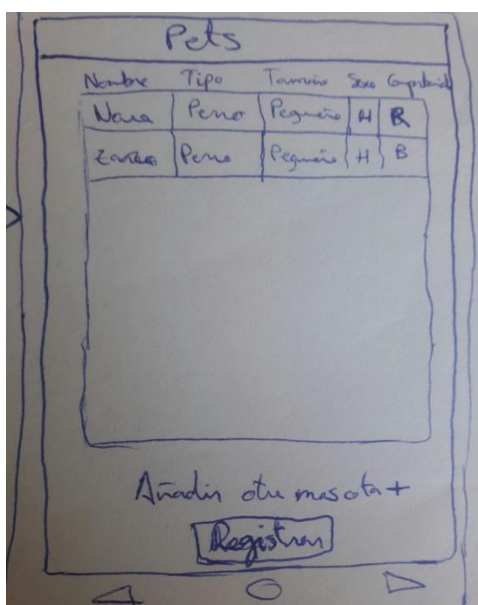 Pets
Nombre Tipo Tamaño Sexo
Nara Perro Pequeño H B
Perro Pequeño H B
Añadir otra mascota +
Registrar